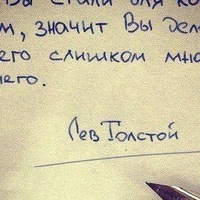 стали для ко
м, значит Вы дел
его слишком мно
него.
Лев Толстой